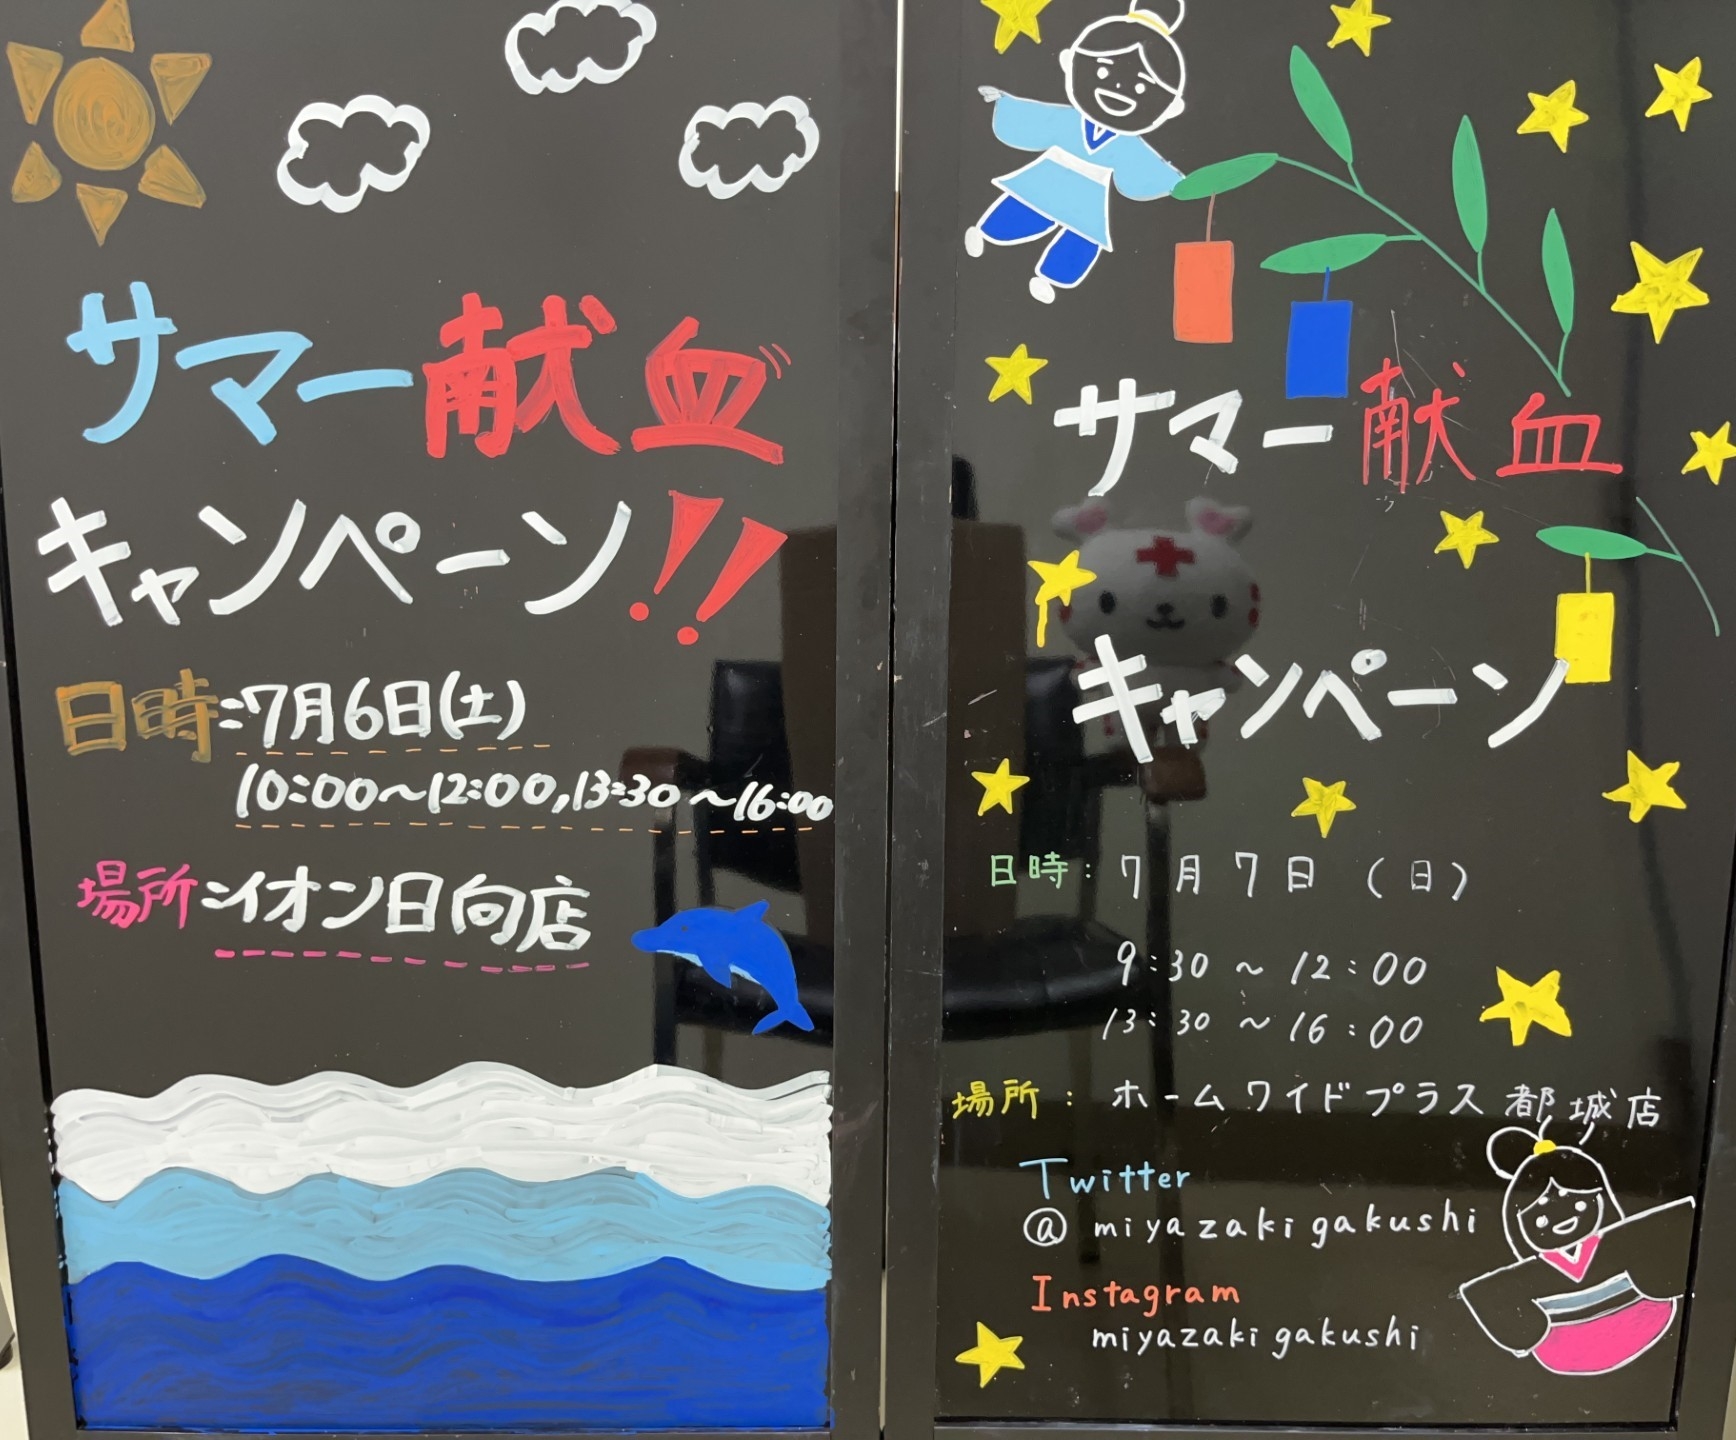 サマー献血
キャンペーン!!
日時:7月6日(土)
10:00~12:00,13:30~16:00
場所:イオン日向店
サマー献血
キャンペーン
日時:7月7日(日)
9:30~12:00
13:30~16:00
場所:ホームワイドプラス都城店
Twitter
@miyazakigakushi
Instagram
miyazakigakushi